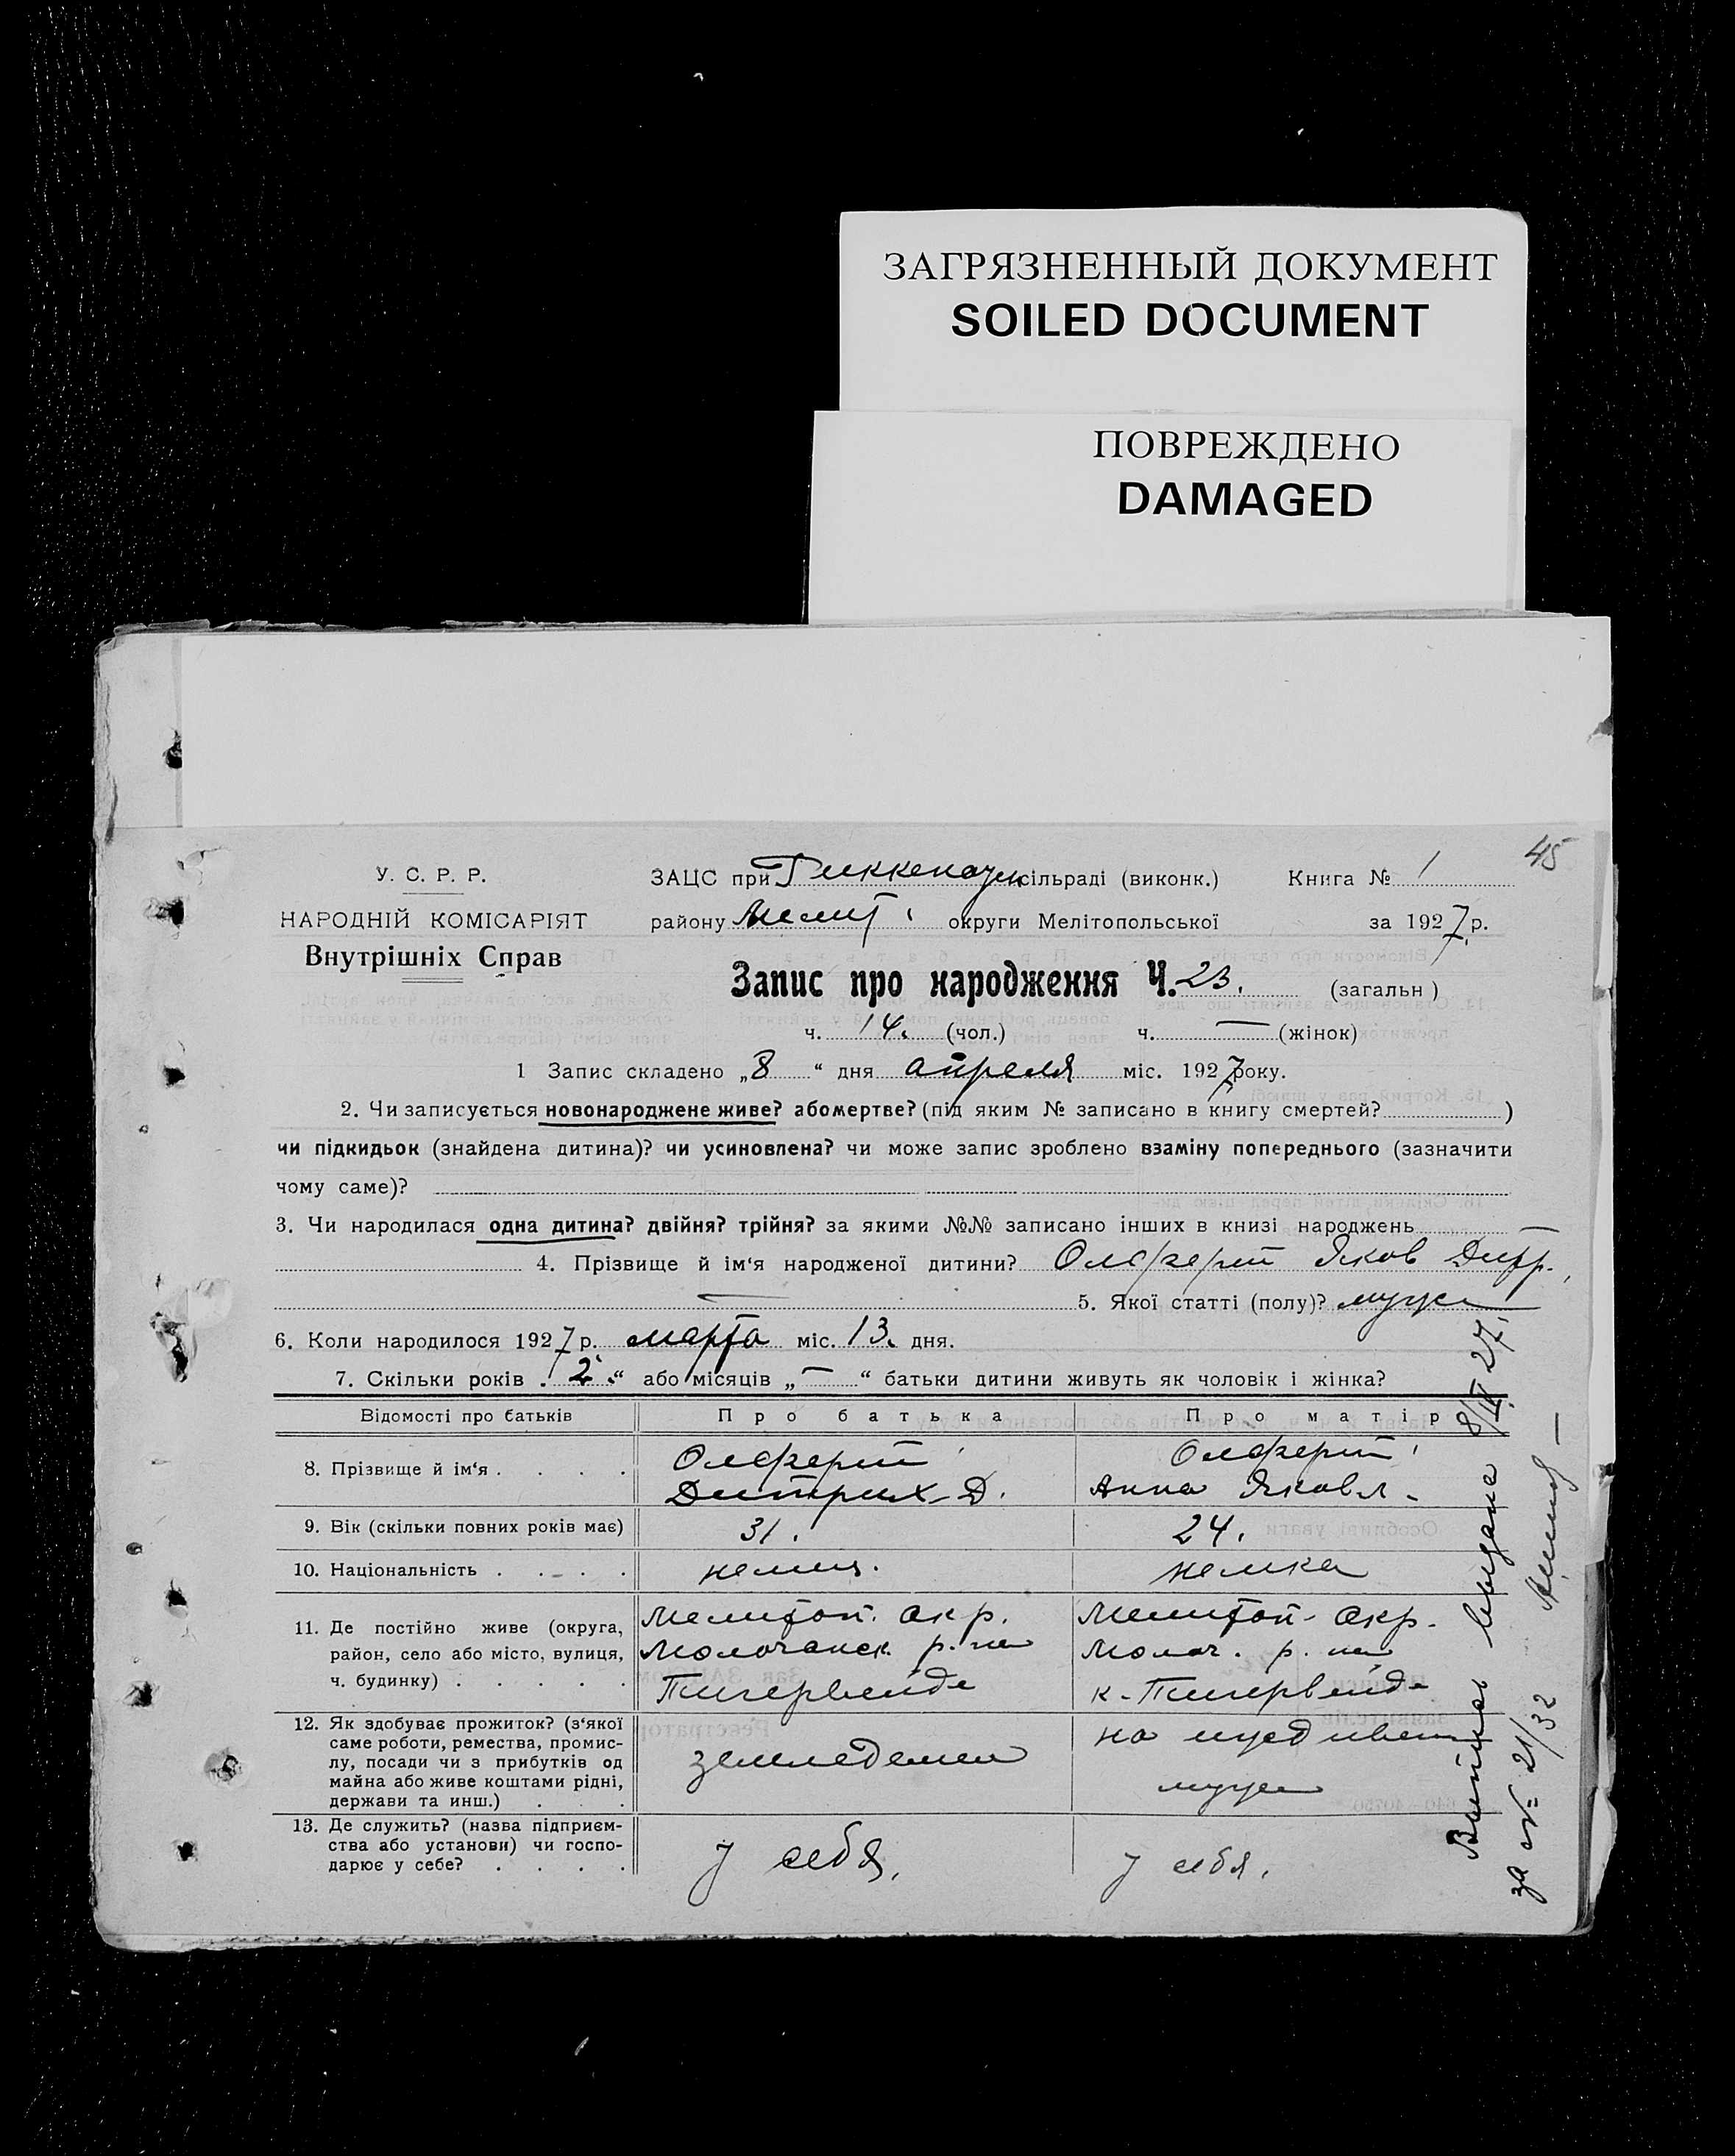 ЗАГРЯЗНЕННЫЙ ДОКУМЕНТ
SOILED DOCUMENT
ПОВРЕЖДЕНО
DAMAGED
45
У. С. Р. Р.
НАРОДНІЙ КОМІСАРІЯТ
Внутрішніх Справ
ЗАЦС при сільраді (виконк.) Книга № 1
району Мелит. округи Мелітопольської за 1927 р.
Запис про народження Ч. 23. (загальн )
ч. 14. (чол.) ч. — (жінок)
1 Запис складено „8“ дня апреля міс. 1927 року.
2. Чи записується новонароджене живе? або мертве? (під яким № записано в книгу смертей? )
чи підкидьок (знайдена дитина)? чи усиновлена? чи може запис зроблено взаміну попереднього (зазначити
чому саме)?
3. Чи народилася одна дитина? двійня? трійня? за якими №№ записано інших в книзі народжень —
4. Прізвище й ім‘я народженої дитини? Олферт Яков Дитр.
— 5. Якої статті (полу)? мужс
6. Коли народилося 1927 р. марта міс. 13. дня.
7. Скільки років „2“ або місяців „—“ батьки дитини живуть як чоловік і жінка?
Відомості про батьків Про батька Про матір
8. Прізвище й ім‘я . . . . Олферт Дитрих Д. Олферт Анна Яковл.
9. Вік (скільки повних років має) 31. 24.
10. Національність . . . . немец. немка
11. Де постійно живе (округа,
район, село або місто, вулиця,
ч. будинку) . . . . .
Мелитоп. окр.
Молочанск. р.на
Тигервейде
Мелитоп. окр.
Молоч. р. на
к. Тигервейде
12. Як здобуває прожиток? (з‘якої
саме роботи, ремества, промис-
лу, посади чи з прибутків од
майна або живе коштами рідні,
держави та инш.) . . .
земледелец
на иждивен
мужа
13. Де служить? (назва підприєм-
ства або установи) чи госпо-
дарює у себе? . . . .
у себя.
у себя.
Выпись выдана 8/IV 27.
за № 21/32